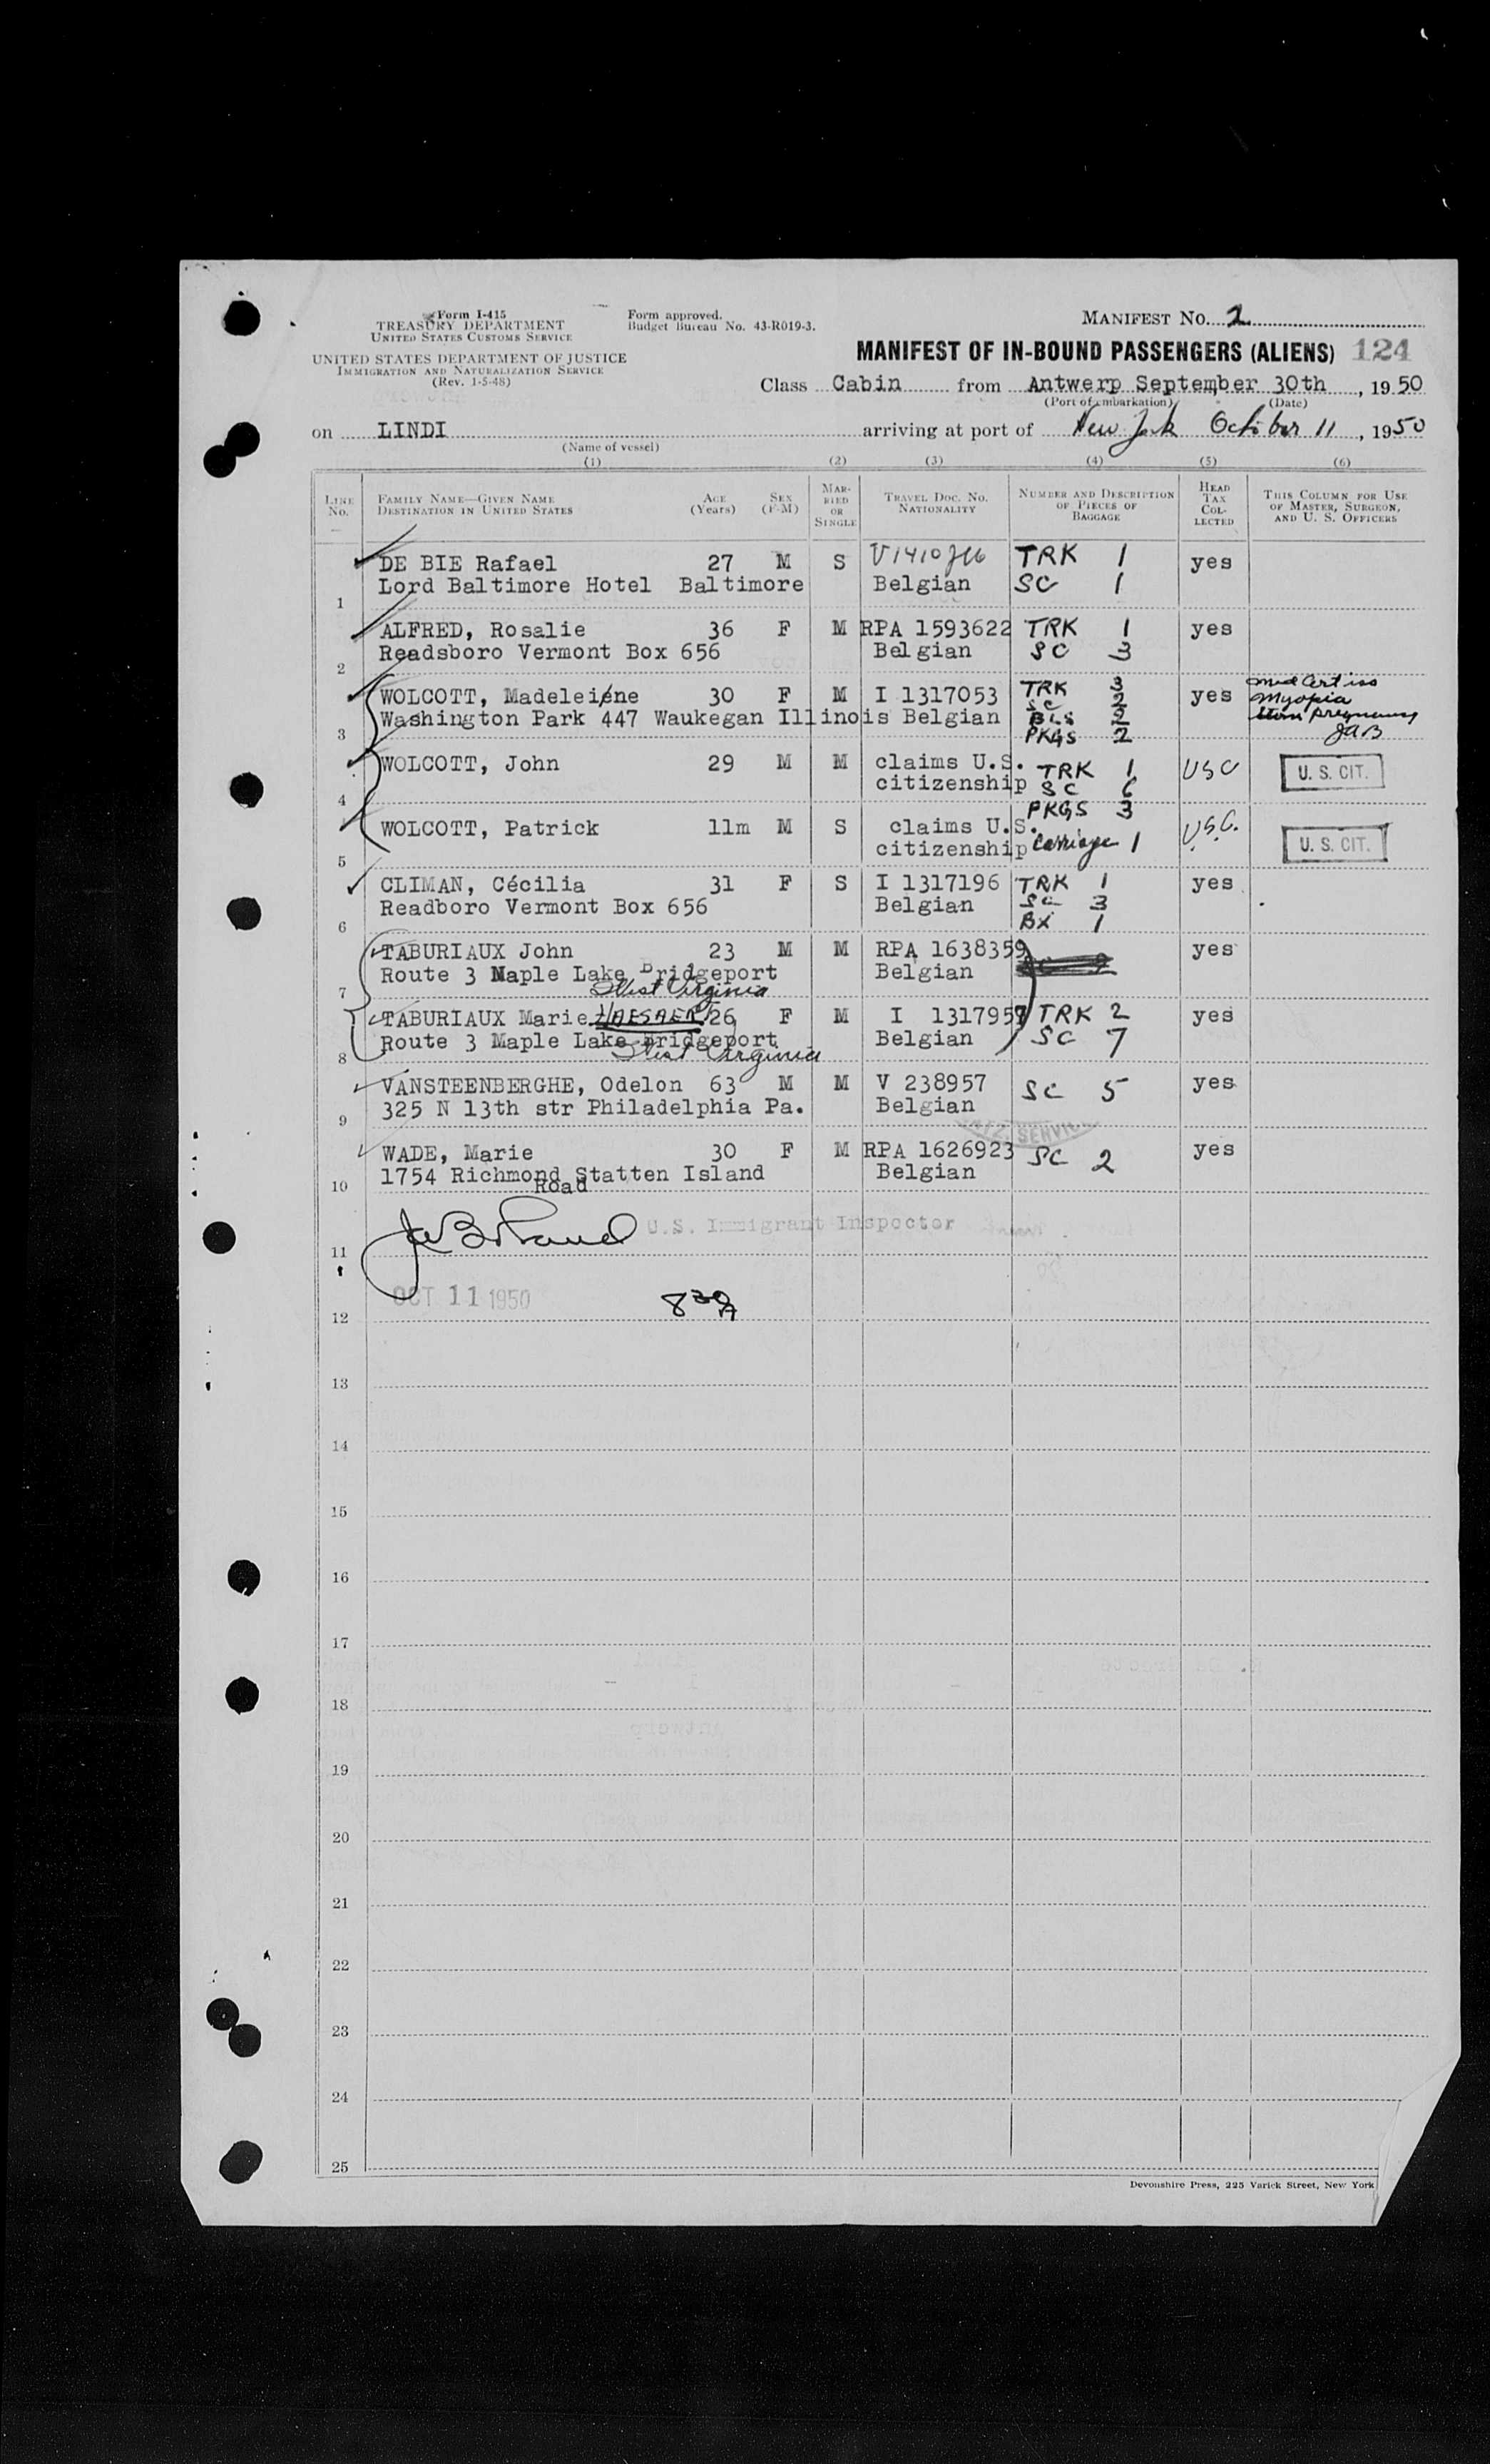 Form I-415
TREASURY DEPARTMENT
UNITED STATES CUSTOMS SERVICE
UNITED STATES DEPARTMENT OF JUSTICE
IMMIGRATION AND NATURALIZATION SERVICE
(Rev. 1-5-48)
Form approved.
Budget Bureau No. 43-R019-3.
MANIFEST NO. 2
MANIFEST OF IN-BOUND PASSENGERS (ALIENS) 124
Class Cabin from Antwerp September 30th, 1950
(Port of embarkation) (Date)
on LINDI arriving at port of New York October 11, 1950
(Name of vessel)
(1) (2) (3) (4) (5) (6)
LINE NO. FAMILY NAME—GIVEN NAME DESTINATION IN UNITED STATES AGE (Years) SEX (F-M) MARRIED OR SINGLE TRAVEL DOC. NO. NATIONALITY NUMBER AND DESCRIPTION OF PIECES OF BAGGAGE HEAD TAX COLLECTED THIS COLUMN FOR USE OF MASTER, SURGEON, AND U. S. OFFICERS
DE BIE Rafael 27 M S TRK 1 yes
1 Lord Baltimore Hotel Baltimore Belgian SC 1
ALFRED, Rosalie 36 F M RPA 1593622 TRK 1 yes
2 Readsboro Vermont Box 656 Belgian SC 3
WOLCOTT, Madeleiene 30 F M I 1317053 TRK 3 SC 2 yes Med Cert iss Myopia
3 Washington Park 447 Waukegan Illinois Belgian BLS 2 PKGS 2 pregnancy JAB
4 WOLCOTT, John 29 M M claims U.S. citizenship TRK 1 SC 6 PKGS 3 USC U. S. CIT.
5 WOLCOTT, Patrick 11m M S claims U.S. citizenship Carriage 1 U.S.C. U. S. CIT.
CLIMAN, Cécilia 31 F S I 1317196 TRK 1 yes
6 Readboro Vermont Box 656 Belgian SC 3 BX 1
TABURIAUX John 23 M M RPA 1638359 yes
7 Route 3 Maple Lake Bridgeport Belgian
West Virginia
TABURIAUX Marie HAESAER 26 F M I 1317957 TRK 2 yes
8 Route 3 Maple Lake Bridgeport Belgian SC 7
West Virginia
VANSTEENBERGHE, Odelon 63 M M V 238957 SC 5 yes
9 325 N 13th str Philadelphia Pa. Belgian
SERVICE
WADE, Marie 30 F M RPA 1626923 SC 2 yes
10 1754 Richmond Statten Island Belgian
Road
11 U.S. Immigrant Inspector
OCT 11 1950 8 30 A
12
13
14
15
16
17
18
19
20
21
22
23
24
25
Devonshire Press, 225 Varick Street, New York